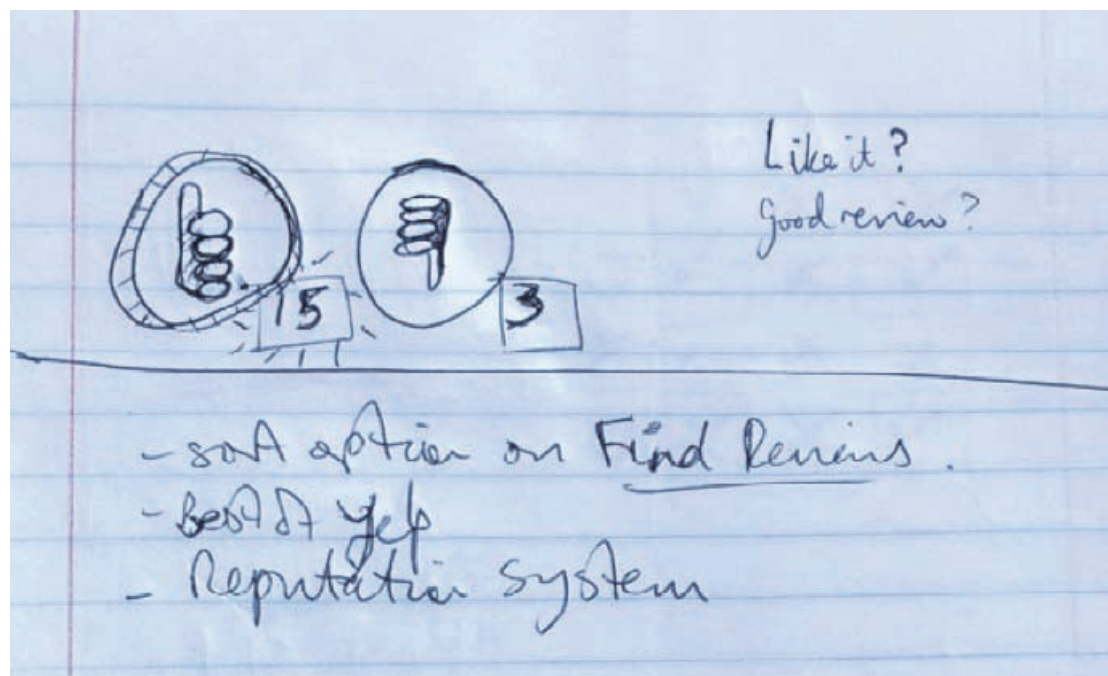 Like it?
Good review?
15
3
- sort option on Find Reviews.
- Best of Yelp
- Reputation system